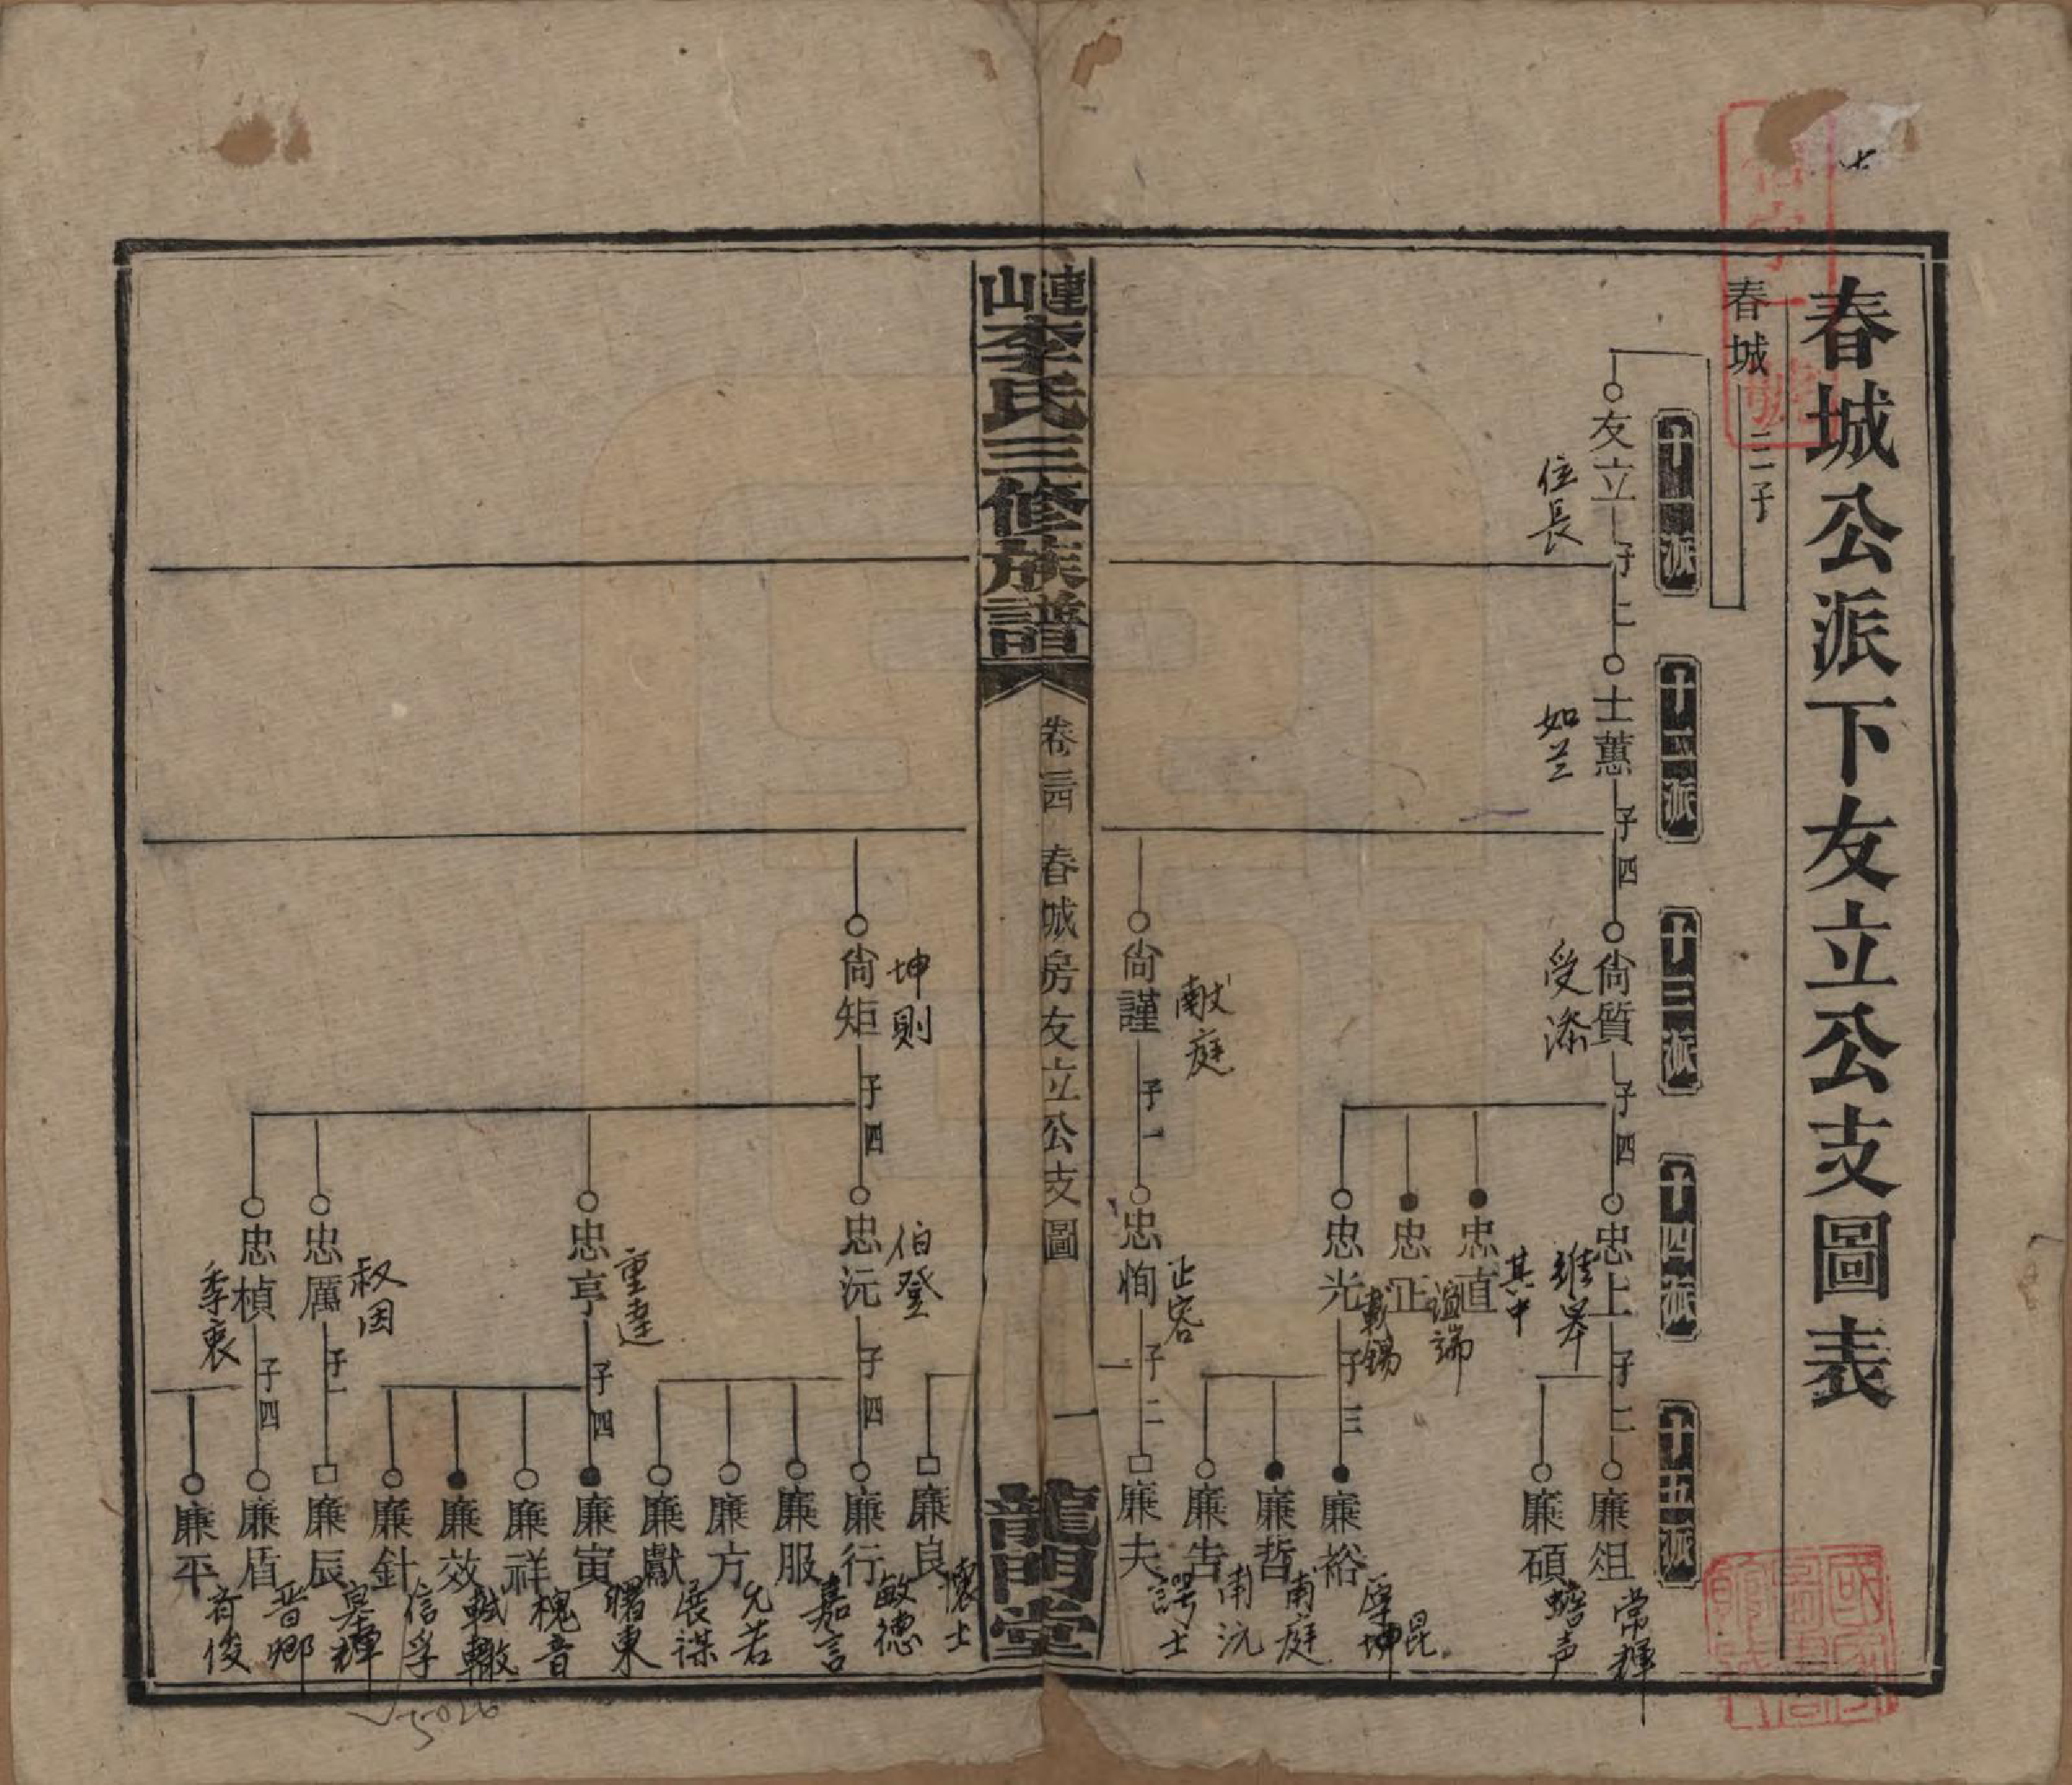 春城公派下友立公支圖表
春城
三子
十一派
十二派
十三派
十四派
十五派
友立
子二
位長
士蕙
子四
如兰
尙質
子四
受添
忠上
子二
維舉
忠直
其中
忠正
誼端
忠光
子三
載錫
廉俎
常輝
廉碩
蟾声
廉裕
厚坤
昆
廉哲
南庭
廉吿
南沅
尙謹
子一
献庭
忠恂
子二
正容
廉夫
謌士
漣山李氏三修族譜
卷三四
春城房友立公支圖
一
龍門堂
廉良
懷士
尙矩
子四
坤則
忠沅
子四
伯登
忠亨
子四
重達
忠厲
子一
叔因
忠楨
子四
季衷
廉行
敏德
廉服
嘉言
廉方
允若
廉獻
展謀
廉寅
曙東
廉祥
槐音
廉效
軾轍
廉針
信孚
廉辰
皋輝
廉盾
晋卿
廉平
有俊
5026